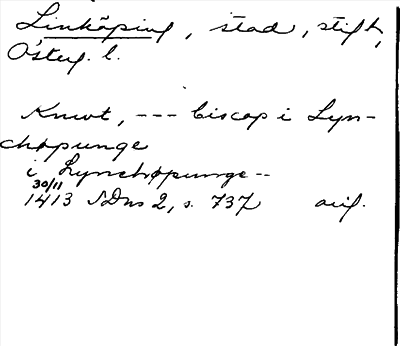 Linköping, stad, stift,
Österg. l.
Knwt, --- biscop i Lyn-
chøpunge
i Lynchøpunge --
30/11
1413 SDns 2, s. 737 orig.